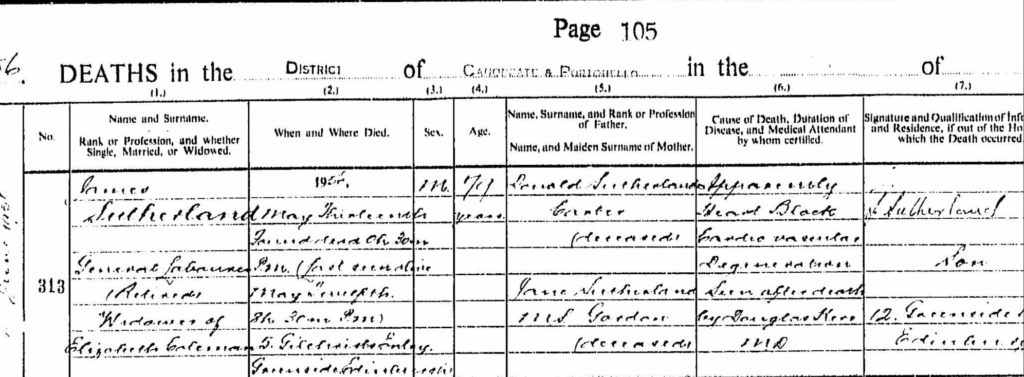 Page 105
DEATHS in the DISTRICT of CANONGATE & PORTOBELLO in the of
(1.) (2.) (3.) (4.) (5.) (6.) (7.)
No. Name and Surname. Rank or Profession, and whether Single, Married, or Widowed. When and Where Died. Sex. Age. Name, Surname, and Rank or Profession of Father. Name, and Maiden Surname of Mother. Cause of Death, Duration of Disease, and Medical Attendant by whom certified. Signature and Qualification of Info and Residence, if out of the Ho which the Death occurred
James M. Donald Sutherland Apparently
Sutherland May Thirteenth years Carter Heart Block Sutherland
Found dead (deceased) Cardio vascular
General Labourer P.m. (last seen alive Degeneration Son
313 (Retired) May Twelfth. Jane Sutherland Seen after death
Widower of P.m.) M.S. Gordon by Douglas Kerr 12. Greenside
Elizabeth Coleman 5. Gilchrist's Entry. (deceased) M.D
Greenside Edinburgh